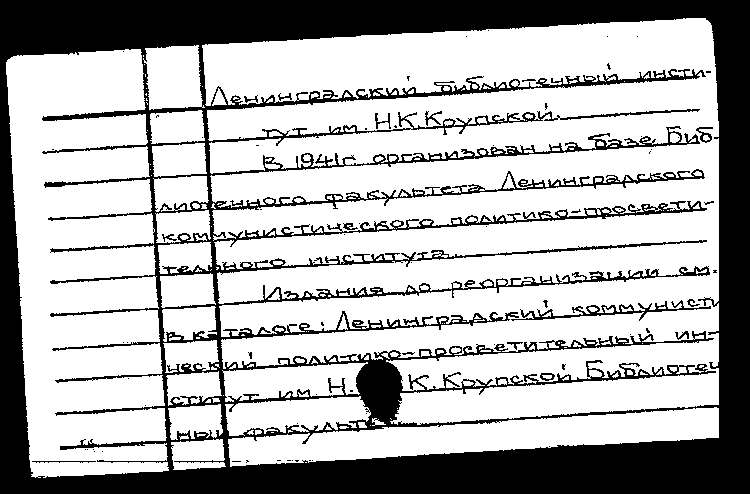 Ленинградский библиотечный инсти-
тут им. Н.К.Крупской.
В 1941г. организован на базе Биб-
лиотечного факультета Ленинградского
коммунистического политико-просвети-
тельного института.
Издания до реорганизации см.
в каталоге: Ленинградский коммунисти
ческий политико-просветительный ин-
ститут им. Н. К. Крупской. Библиотеч
ный факультет.